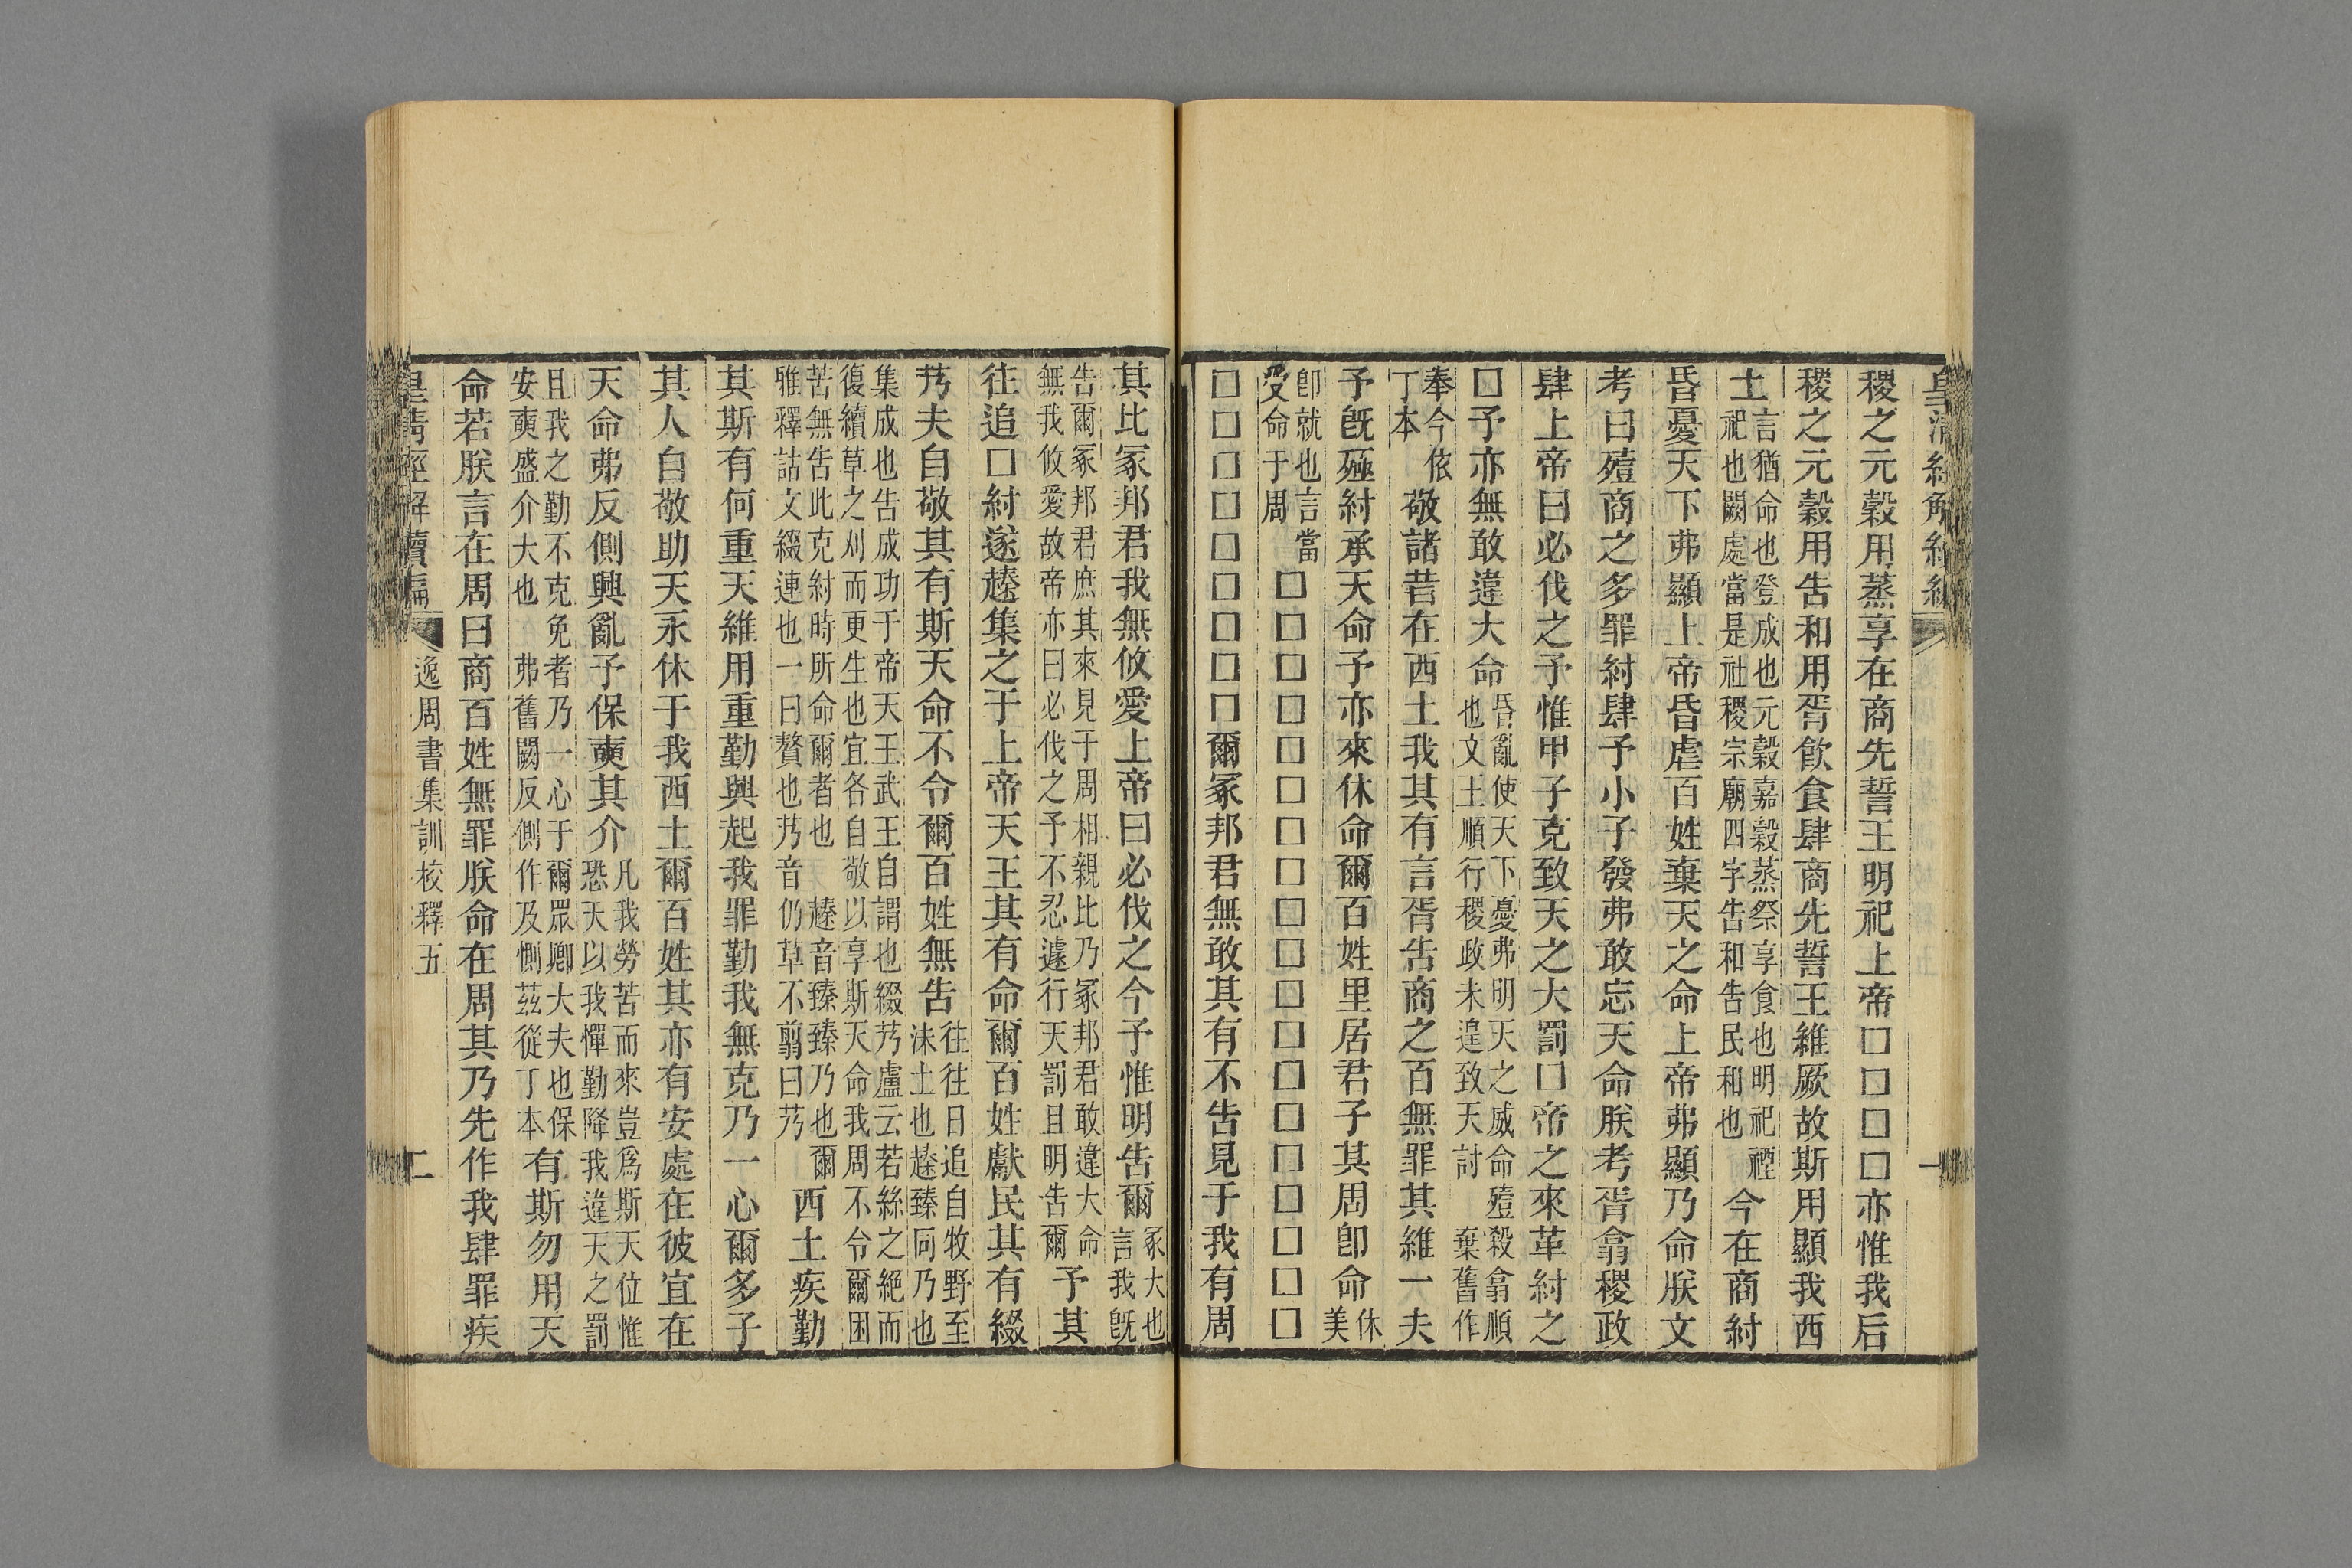 稷之元穀用蒸享在商先誓王明祀上帝□□□□亦惟我后
稷之元穀用告和用胥飲食肆商先誓王維厥故斯用顯我西
土
言猶命也登成也元穀嘉穀蒸祭享食也明祀禋
祀也闕處當是社稷宗廟四字告和告民和也
今在商紂
昏憂天下弗顯上帝昏虐百姓棄天之命上帝弗顯乃命朕文
考曰殪商之多罪紂肆予小子發弗敢忘天命朕考胥翕稷政
肆上帝曰必伐之予惟甲子克致天之大罰□帝之來革紂之
□予亦無敢違大命
昏亂使天下憂弗明天之威命殪殺翕順
也文王順行稷政未遑致天討棄舊作
奉今依
丁本
敬諸昔在西土我其有言胥告商之百無罪其維一夫
予旣殛紂承天命予亦來休命爾百姓里居君子其周卽命
休
美
卽就也言當
受命于周
□□□□□□□□□□□□□□□□□□□
□□□□□□□□□爾冢邦君無敢其有不告見于我有周
其比冢邦君我無攸愛上帝曰必伐之今予惟明告爾
冢大也
言我旣
告爾冢邦君庶其來見于周相親比乃冢邦君敢違大命
無我攸愛故帝亦曰必伐之予不忍遽行天罰且明告爾
予其
往追□紂遂趮集之于上帝天王其有命爾百姓獻民其有綴
艿夫自敬其有斯天命不令爾百姓無告
往往日追自牧野至
沬土也趮臻同乃也
集成也告成功于帝天王武王自謂也綴艿盧云若絲之絕而
復續草之刈而更生也宜各自敬以享斯天命我周不令爾困
苦無告此克紂時所命爾者也 趮音臻臻乃也爾
雅釋詁文綴連也一曰贅也艿音仍草不翦曰艿
西土疾勤
其斯有何重天維用重勤興起我罪勤我無克乃一心爾多子
其人自敬助天永休于我西土爾百姓其亦有安處在彼宜在
天命弗反側興亂予保奭其介
凡我勞苦而來豈爲斯天位惟
恐天以我憚勤降我違天之罰
且我之勤不克免者乃一心于爾眾卿大夫也保
安奭盛介大也 弗舊闕反側作及惻茲從丁本
有斯勿用天
命若朕言在周曰商百姓無罪朕命在周其乃先作我肆罪疾
皇清經解續編
逸周書集訓校釋五
二